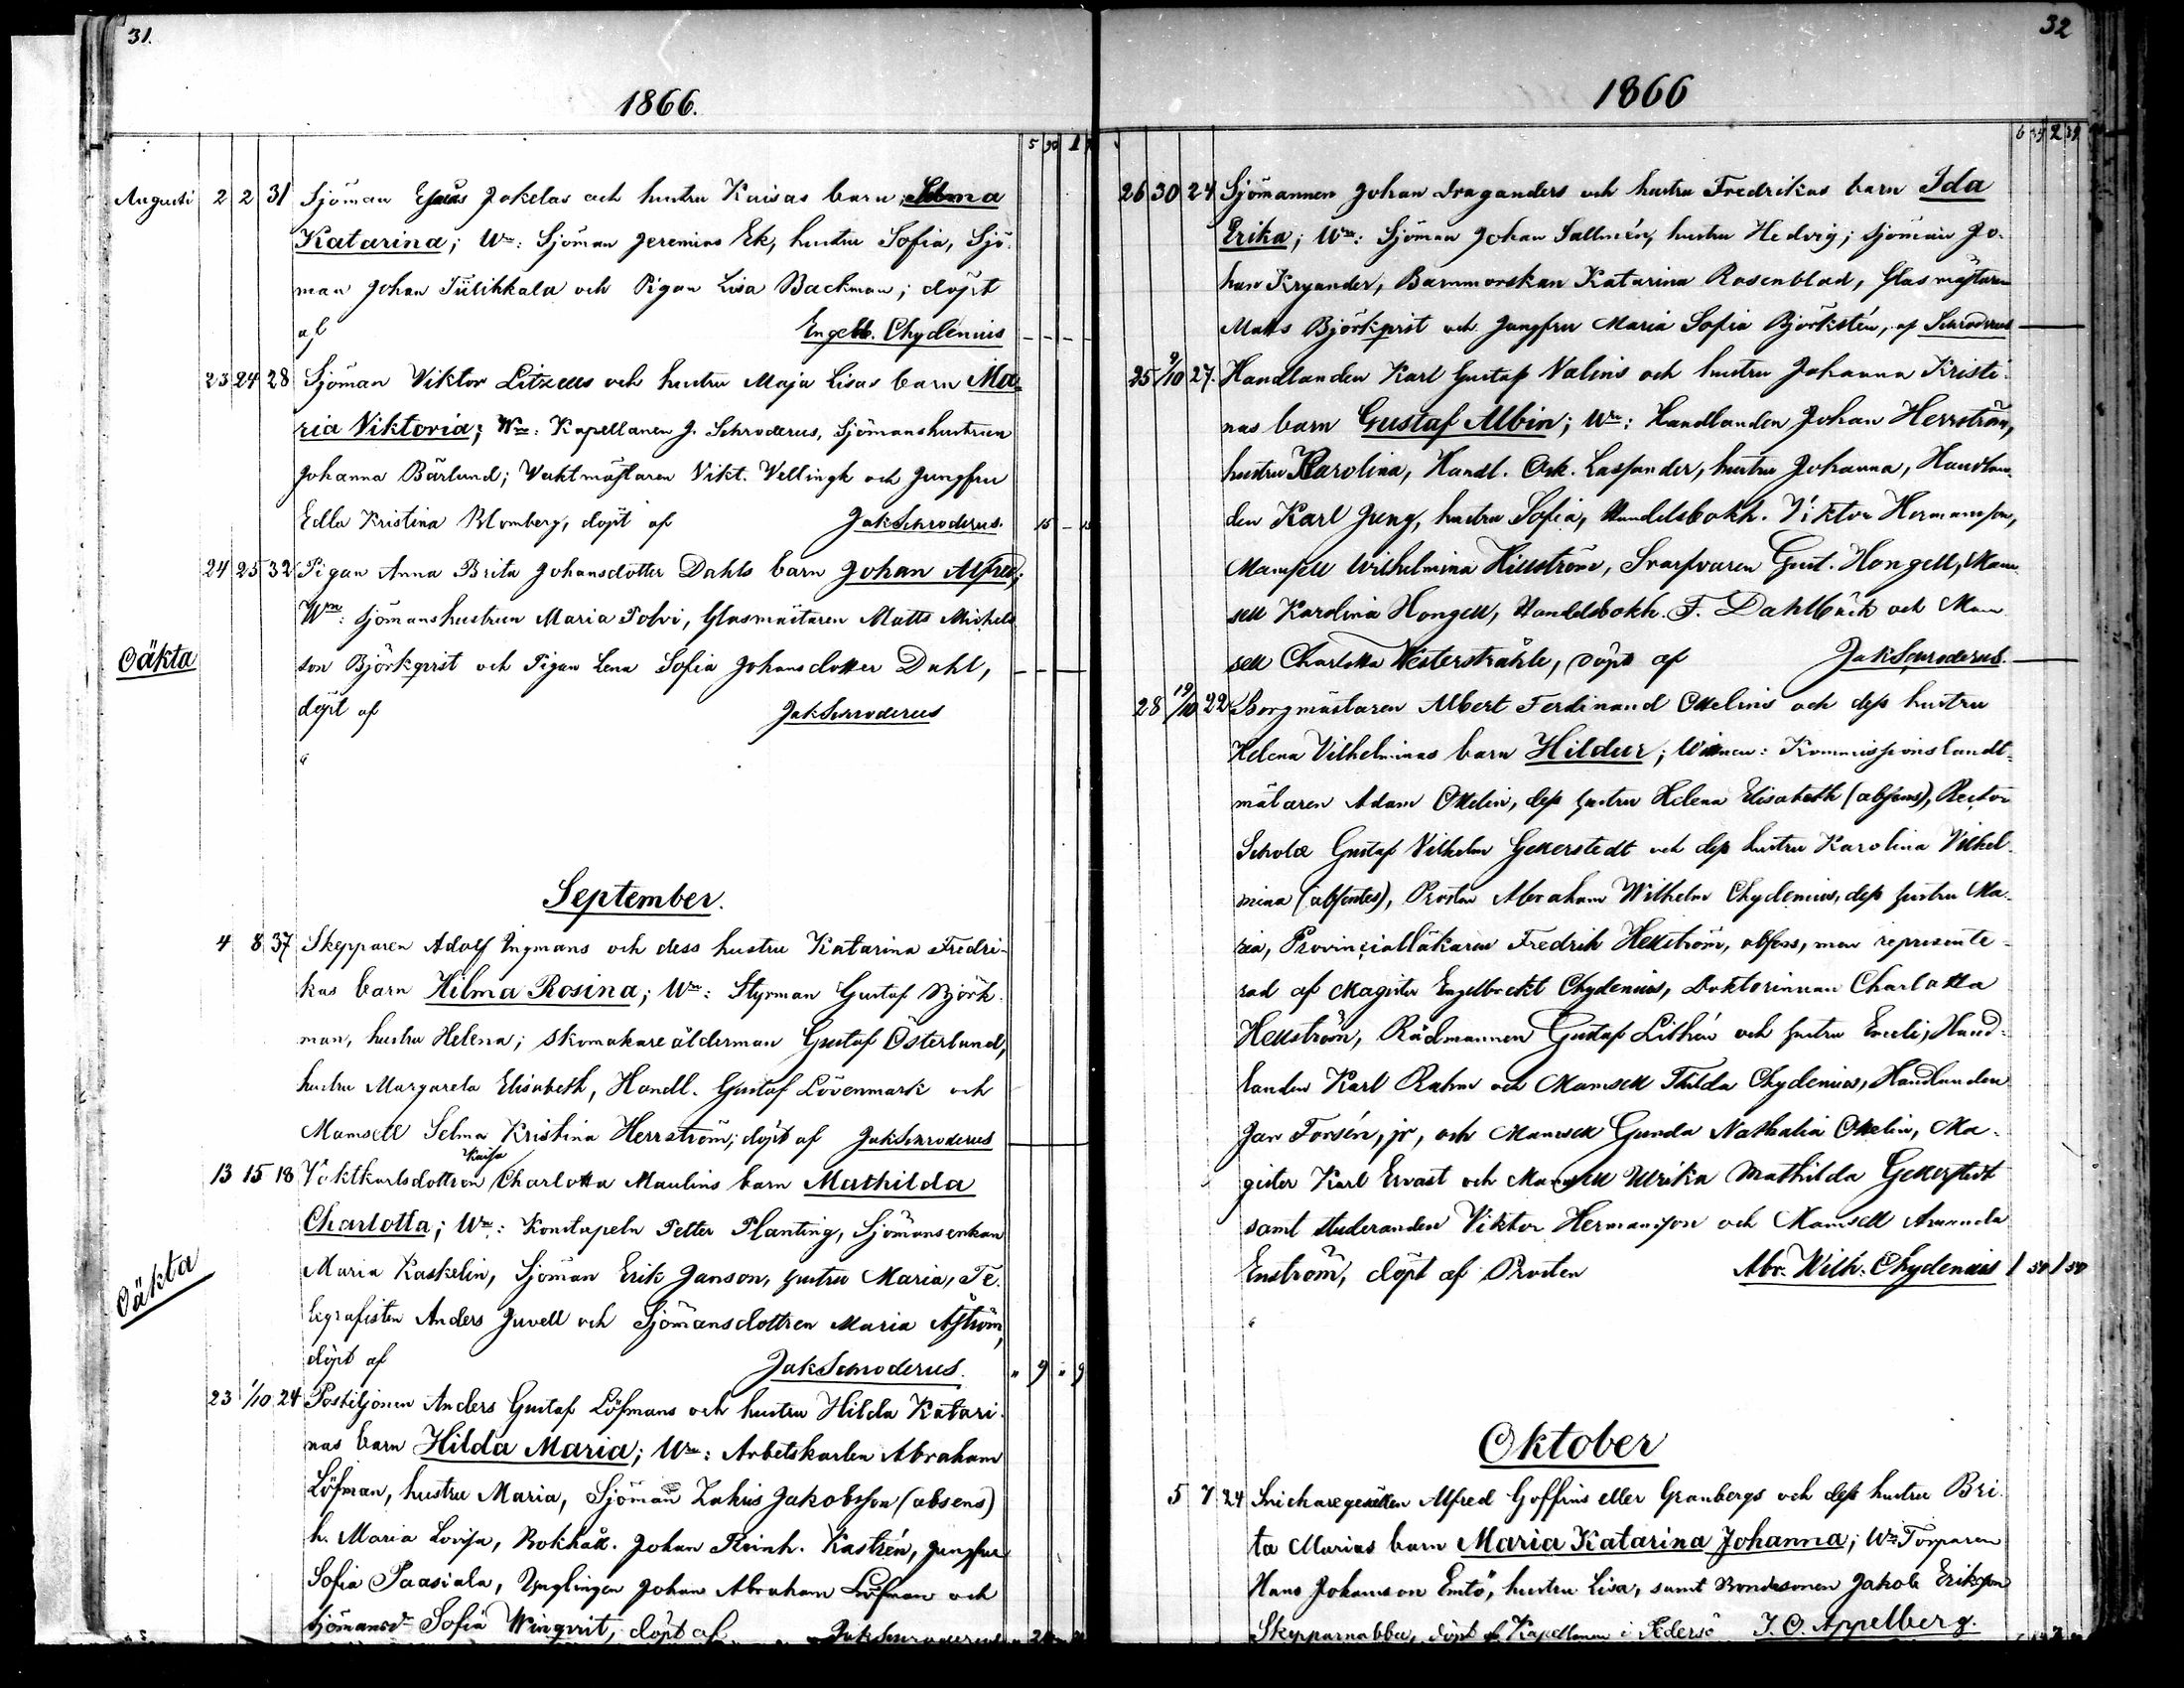 31.
1866.
5 90 1
Augusti 2 2 31 Sjöman Esaias Jokelas och hustru Kaisas barn Selma
Katarina; Wn: Sjöman Jeremias Ek, hustru Sofia, Sjö-
man Johan Tülikkala och Pigan Lisa Backman; döpt
af Engelb. Chydenius
23 24 28 Sjöman Viktor Litzens och hustru Maja Lisas barn Ma-
ria Viktoria; Wn: Kapellanen J. Schroderus, Sjömanshustrun
Johanna Bärlund; Vaktmästaren Vikt. Vellingk och Jungfru
Edla Kristina Blomberg, döpt af Jak Schroderus. 15 – 15
24 25 32 Pigan Anna Brita Johansdotter Dahls barn Johan Alfred;
Wn: sjömanshustrun Maria Polvi, Glasmästaren Matts Michels
Oäkta son Björkqvist och Pigan Lena Sofia Johansdotter Dahl,
döpt af Jak Schroderus
September.
4 8 37 Skepparen Adolf Ingmans och dess hustru Katarina Fredri-
kas barn Hilma Rosina; Wn: Styrman Gustaf Björk-
man, hustru Helena; skomakareålderman Gustaf Österlund,
hustru Margareta Elisabeth, Handl. Gustaf Lövenmark och
Mamsell Selma Kristina Herrström; döpt af Jak Schroderus
Kaisa
13 15 18 Vaktkarlsdottren Charlotta Maulins barn Mathilda
Charlotta; Wn: Konstapeln Petter Planting, Sjömansenkan
Oäkta Maria Kaskelin, Sjöman Erik Janson, hustru Maria, Te-
legrafisten Anders Juvell och Sjömansdottren Maria Åström,
döpt af Jak Schroderus. " 9 " 9
23 1/10 24 Postiljonen Anders Gustaf Löfmans och hustru Hilda Katari-
nas barn Hilda Maria; Wn: Arbetskarlen Abraham
Löfman, hustru Maria, Sjöman Zakris Jakobsson (absens)
h. Maria Lovisa, Bokhåll. Johan Reinh. Kastrén, Jungfru
Sofia Paasiala, Ynglingen Johan Abraham Löfman och
Sjömansd:r Sofia Winqvist, döpt af Jak Schroderus
32
1866
6 39 2 39
26 30 24 Sjömannen Johan Draganders och hustru Fredrikas barn Ida
Erika; Wn: Sjöman Johan Sallmén, hustru Hedvig; sjöman Jo-
han Kryander, Barnmorskan Katarina Rosenblad, Glasmästaren
Matts Björkqvist och Jungfru Maria Sofia Björkstén, af Schroderus
25 9/10 27. Handlanden Karl Gustaf Nalins och hustru Johanna Kristi-
nas barn Gustaf Albin; Wn: Handlanden Johan Herrström,
hustru Karolina, Handl. Osk. Lassander, hustru Johanna, Handlan-
den Karl Jung, hustru Sofia, Handelsbokh. Viktor Hermanson,
Mamsell Wilhelmina Hillström, Svarfvaren Gust. Hongell, Mam-
sell Karolina Hongell, Handelsbokh. F. Dahlbäck och Mam-
sell Charlotta Westerstråhle, döpt af Jak Schroderus.
28 19/10 22 Borgmästaren Albert Ferdinand Ottelins och dess hustru
Helena Vilhelminas barn Hildur; Wittnen: Kommissionslandt-
mätaren Adam Ottelin, dess hustru Helena Elisabeth (absens), Rector
Scholæ Gustaf Vilhelm Gellerstedt och dess hustru Karolina Vilhel-
mina (absentes), Prosten Abraham Wilhelm Chydenius, dess hustru Ma-
ria, Provincialläkaren Fredrik Hellström, absens, men represente-
rad af Magister Engelbrekt Chydenius, Doktorinnan Charlotta
Hellström, Rådmannen Gustaf Lithén och hustru Emeli, Hand-
landen Karl Rahm och Mamsell Thilda Chydenius, Handlanden
Jan Forsén, jr, och Mamsell Gunda Nathalia Ottelin, Ma-
gister Karl Ervast och Mamsell Ulrika Mathilda Gellerstedt
samt studeranden Viktor Hermanson och Mamsell Amanda
Enström, döpt af Prosten Abr. Wilh. Chydenius 1 50 1 50
Oktober
5 7 24 Snickaregesällen Alfred Goffins eller Granbergs och dess hustru Bri-
ta Marias barn Maria Katarina Johanna; Wn: Torparen
Hans Johansson Emtö, hustru Lisa, samt Bondesonen Jakob Erikson
Skepparnabba, döpt af Kapellanen i Pedersö J. O. Appelberg.